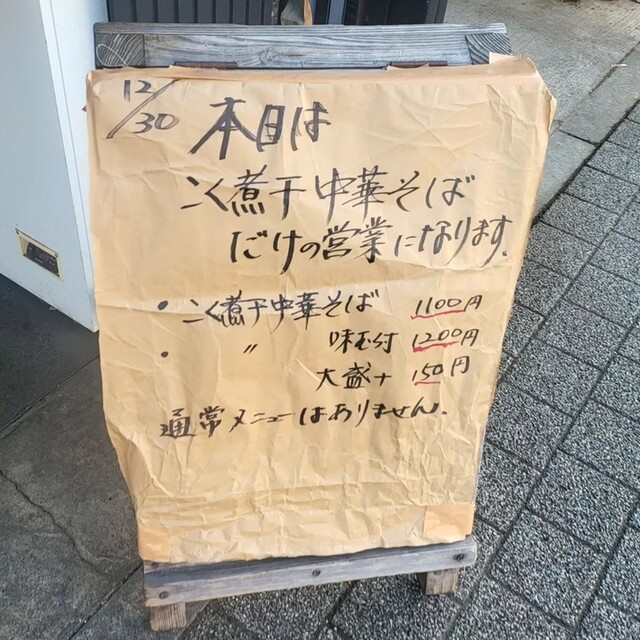 12/30 本日は
こく煮干中華そば
だけの営業になります。
・こく煮干中華そば 1100円
・ 〃 味玉付 1200円
大盛+ 150円
通常メニューはありません。